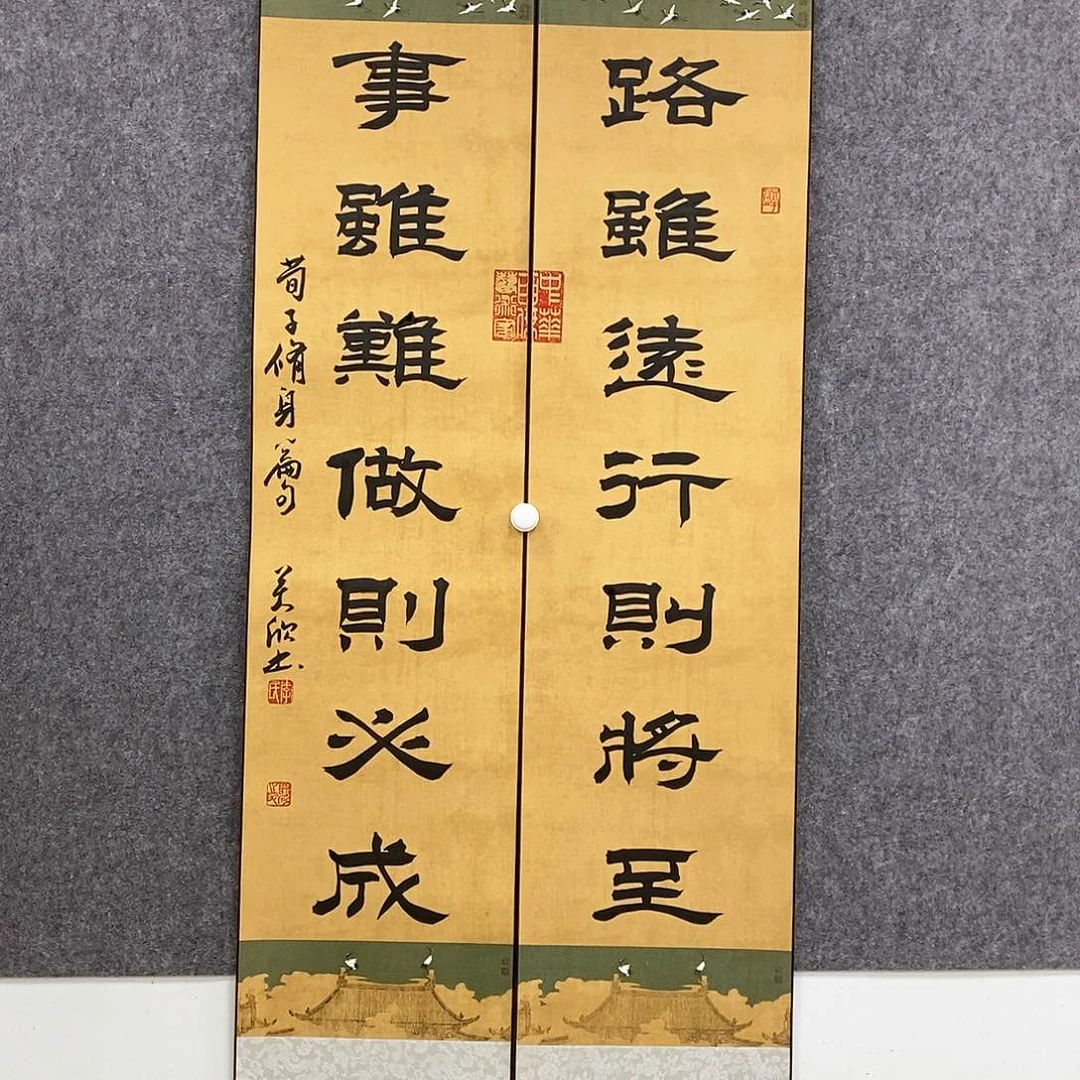 路雖遠行則將至
事雖難做則必成
荀子脩身篇句 美欣书